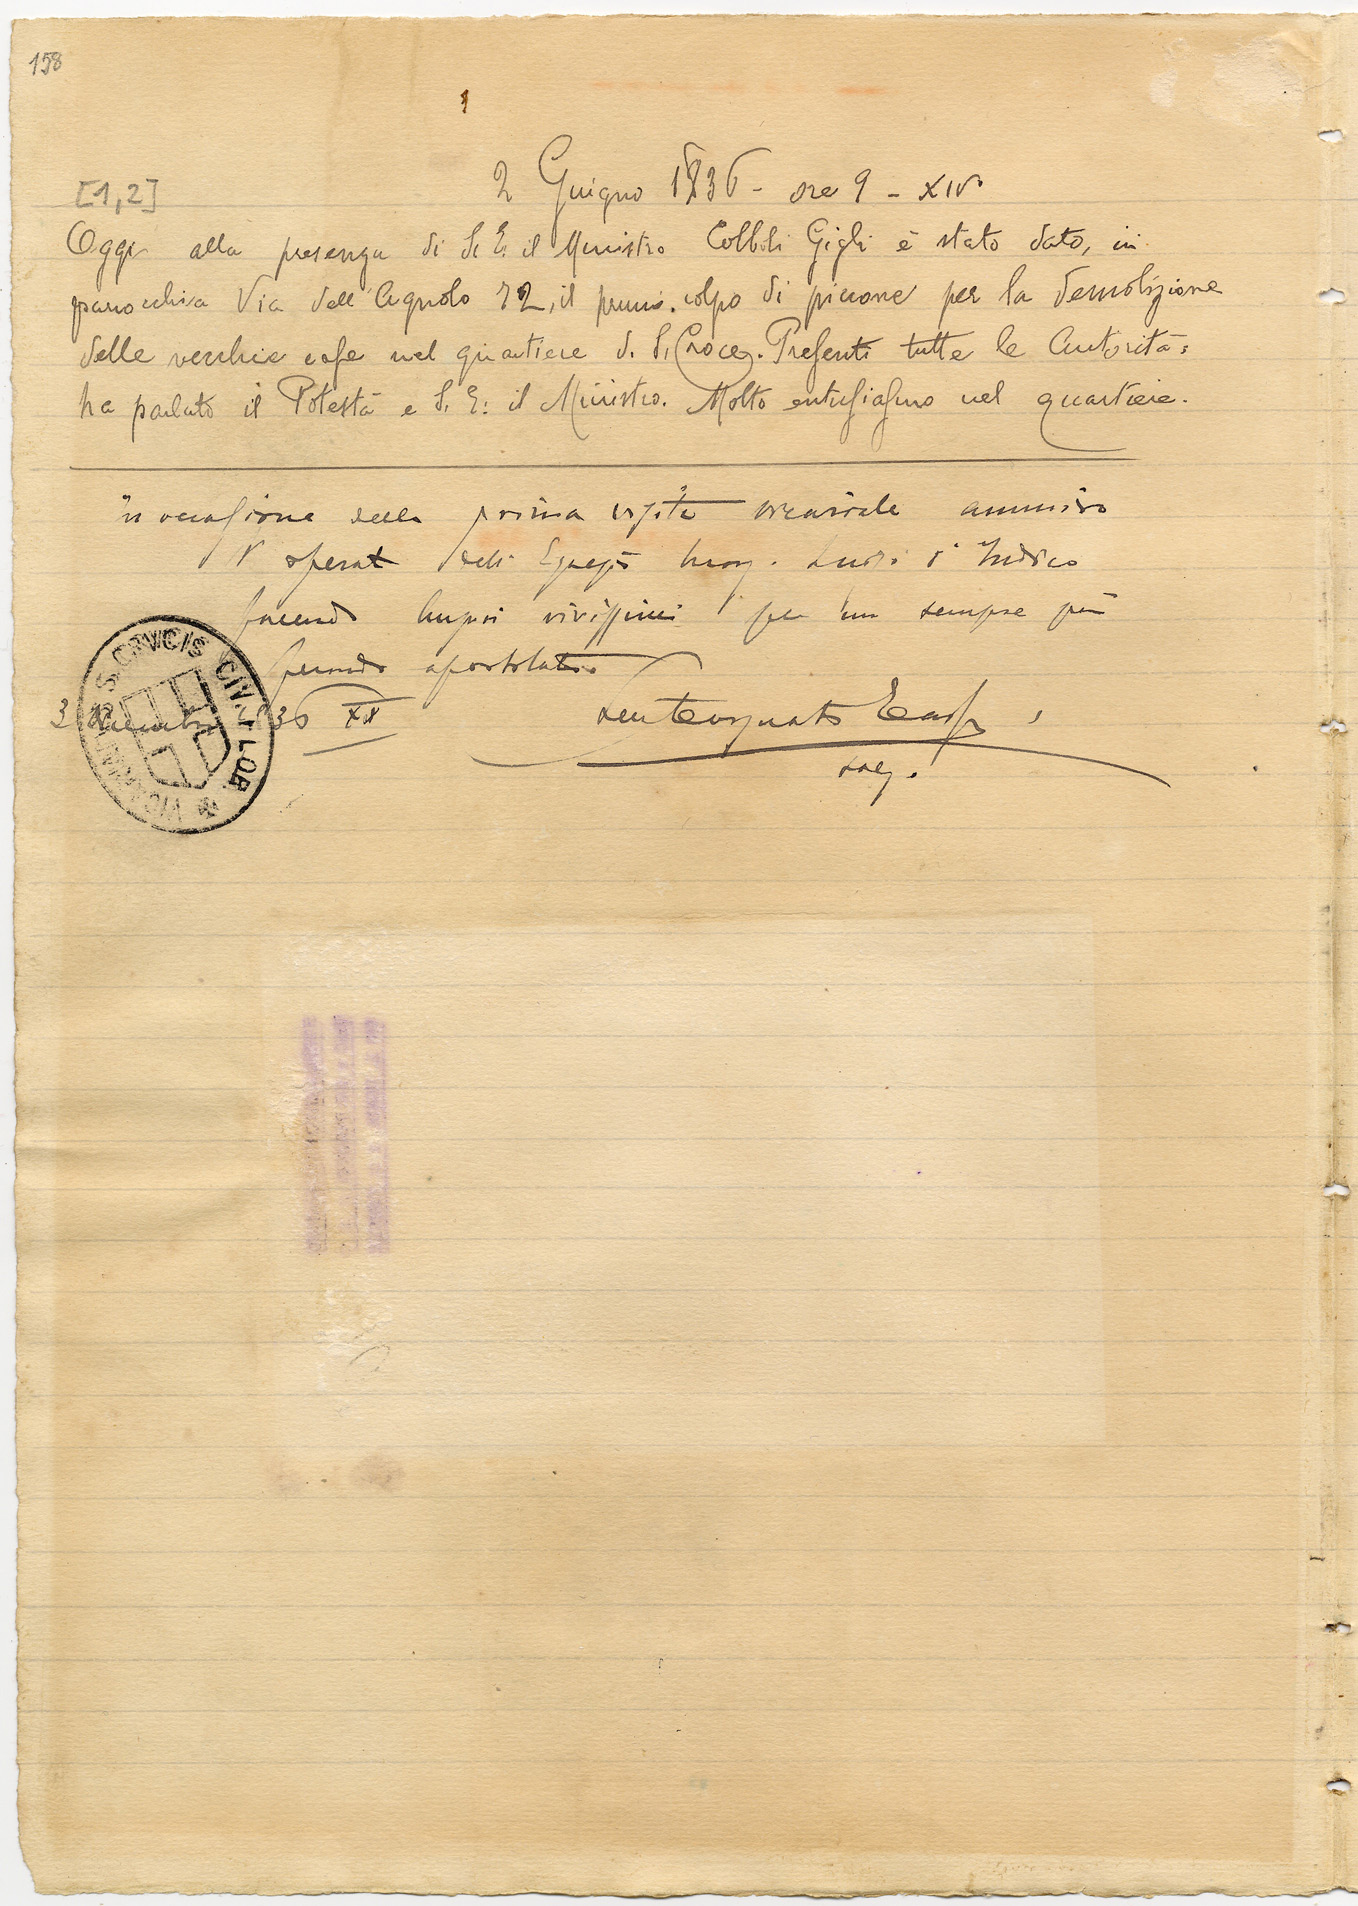 158
[1,2]
2 Giugno 1936 - ore 9 - XIV°
Oggi alla presenza di S. E. il Ministro Cobboli Gigli è stato dato, in
parrocchia Via dell'Agnolo 72, il primo colpo di piccone per la demolizione
delle vecchie case nel quartiere di S. Croce. Presenti tutte le Autorità:
ha parlato il Potestà e S. E: il Ministro. Molto entusiasmo nel quartiere.
in occasione della prima visita vicariale ammiro
l' operat dell' Sac. Luigi d'Indico
facendo auguri vivissimi per un sempre più
fecondo apostolato
3 36 XV
VICARIATVS S. CRVCIS CIV. FLOR.